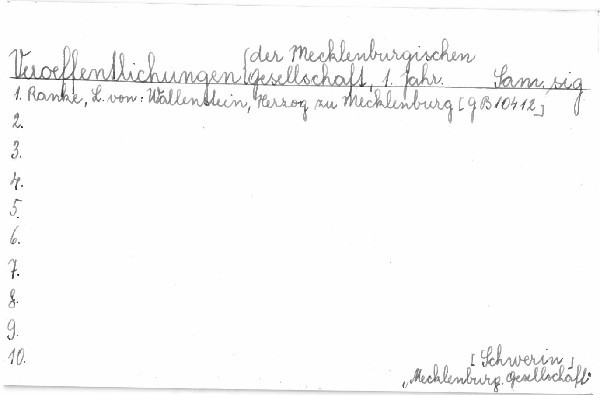 Veroeffentlichungen {der Mecklenburgischen
Gesellschaft, 1. Jahr. Sam. sig
1. Ranke, L. von: Wallenstein, Herzog zu Mecklenburg [gB10412]
2.
3.
4.
5.
6.
7.
8.
9.
10.
[Schwerin]
„Mecklenburg. Gesellschaft"